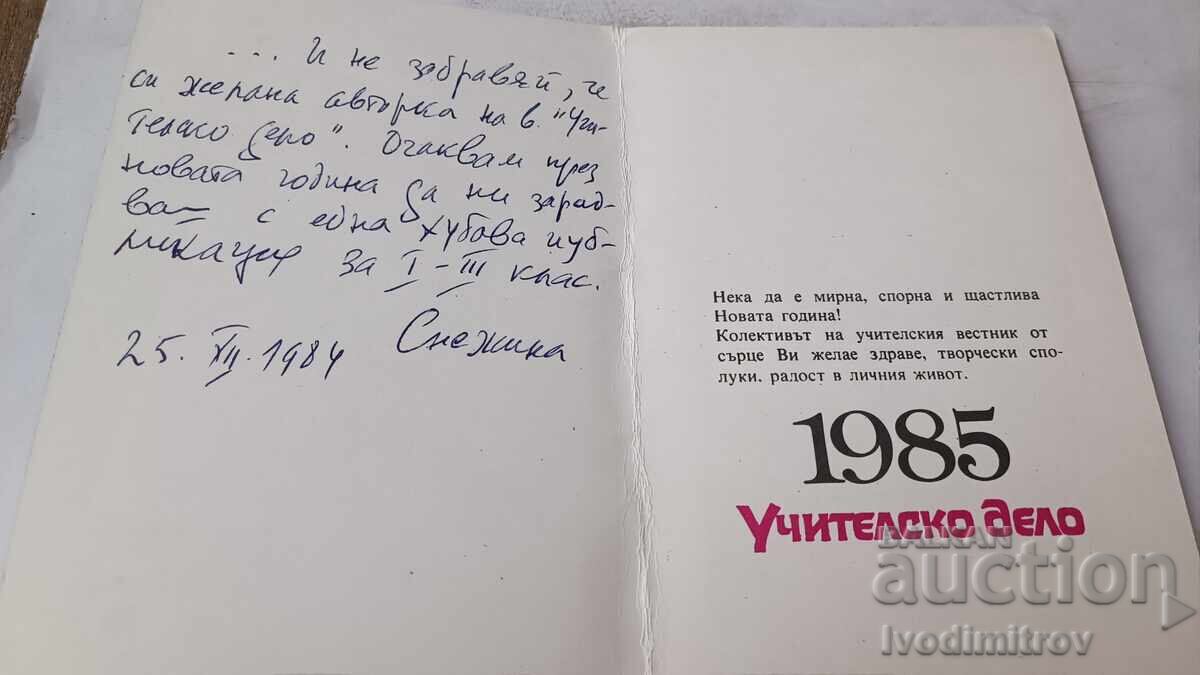 ... И не забравяй, че
си желана авторка на в. "Учи-
телско дело". Очаквам през
новата година да ни зарад-
ваш с една хубава пуб-
ликация за I - III клас.
25. XII. 1984 Снежина
Нека да е мирна, спорна и щастлива
Новата година!
Колективът на учителския вестник от
сърце Ви желае здраве, творчески спо-
луки, радост в личния живот.
1985
Учителско дело
BALKAN
auction
Ivodimitrov